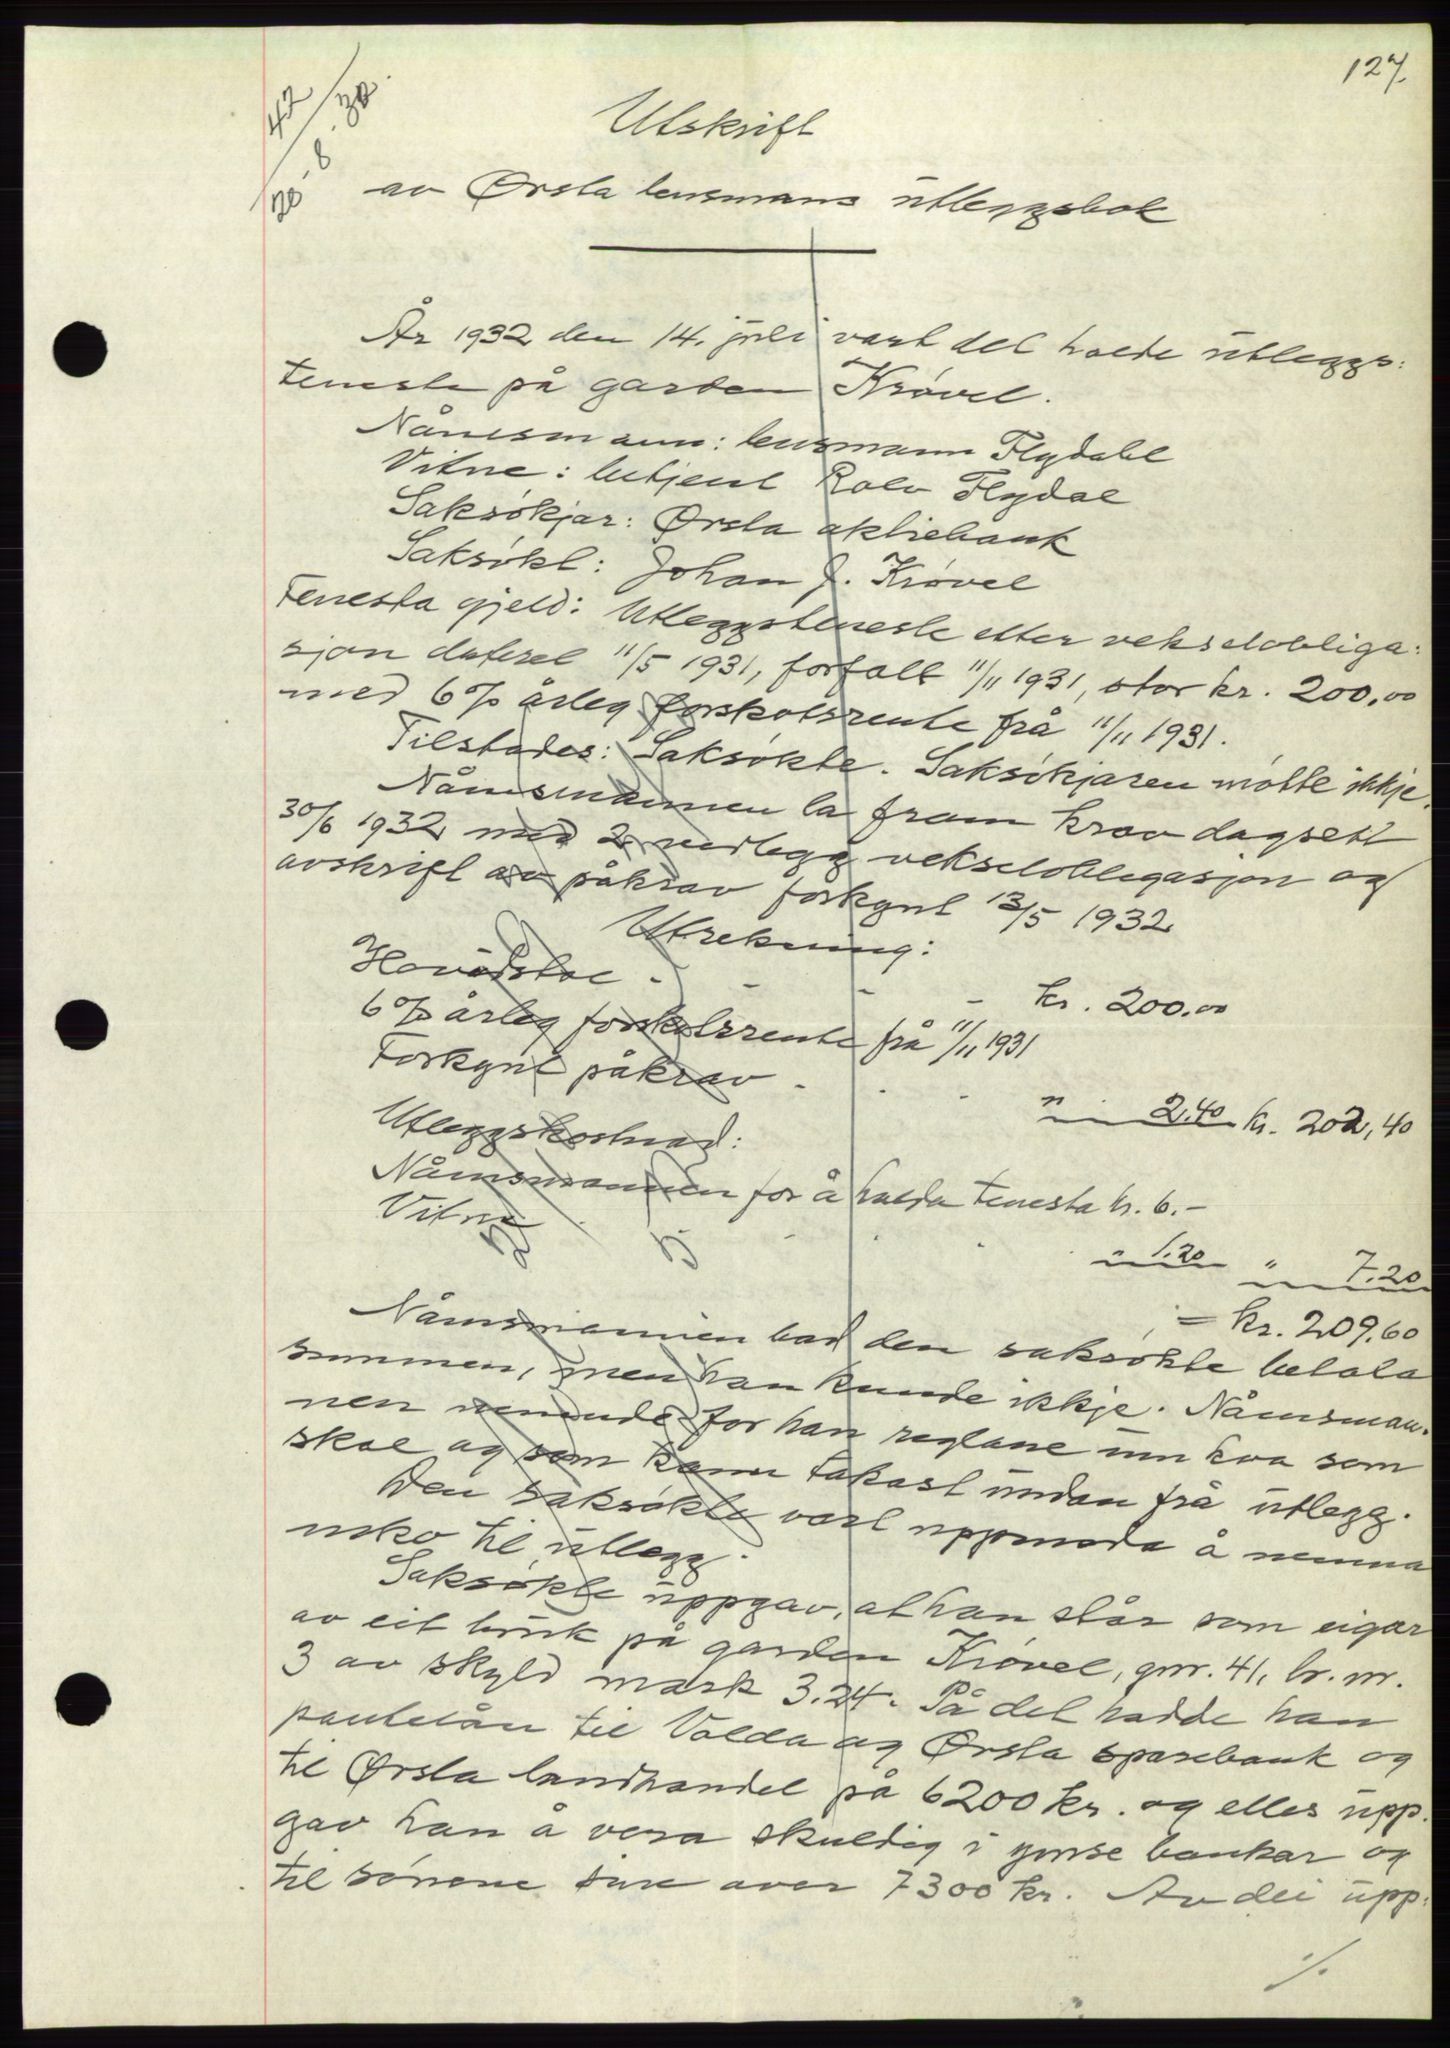 127.
42
20-8-32.
Utskrift
av Ørsta lensmans utleggsbok
År 1932 den 14. juli vart det halde utleggs:
teneste på garden Krøvel.
Nåmsmann: lensmann Flydahl
Vitne: betjent Rolv Flydal
Saksøkjar: Ørsta aktiebank
Saksøkt: Johan J. Krøvel
Tenesta gjeld: Utleggsteneste etter vekselobliga:
sjon datert 11/5 1931, forfall 11/11 1931, stor kr. 200.00
med 6% årleg forskotsrente frå 11/11 1931.
Tilstades: Saksøkte. Saksøkjaren møtte ikkje.
Nåmsmannen la fram krav dagsett
30/6 1932 med 2 vedlegg vekselobligasjon og
avskrift av påkrav forkynt 13/5 1932
Utrekning:
Hovudstol - - - - kr. 200.00
6% årleg forskotsrente frå 11/11 1931
Forkynt påkrav - - - " 2.40 kr. 202,40
Utleggskostnad:
Nåmsmannen for å halda tenesta kr. 6.-
Vitne - - - " 1.20 " 7.20
= kr. 209.60
Nåmsmannen bad den saksøkte betala
summen, men han kunde ikkje. Nåmsman-
nen nemnde for han reglane um kva som
skal og som kann takast undan frå utlegg.
Den saksøkte vart uppmoda å nemna
noko til utlegg.
Saksøkte uppgav, at han står som eigar
av eit bruk på garden Krøvel, gnr. 41, br. nr.
3 av skyld mark 3.24. På det hadde han
pantelån til Volda og Ørsta sparebank og
til Ørsta landhandel på 6200 kr. og elles upp-
gav han å vera skuldig i ymse bankar og
til sønene sine over 7300 kr. Av dei upp:
./.